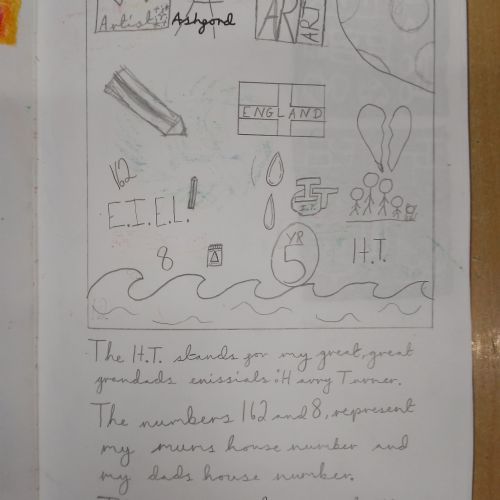 Artist Ashgord ART ART
ENGLAND
162
E.I.E.L.
IT
I.T.
8
YR
5
H.T.
The H.T. stands for my great, great
grandads enissials: Harry Turner.
The numbers 162 and 8, represent
my mums house number and
my dads house number.